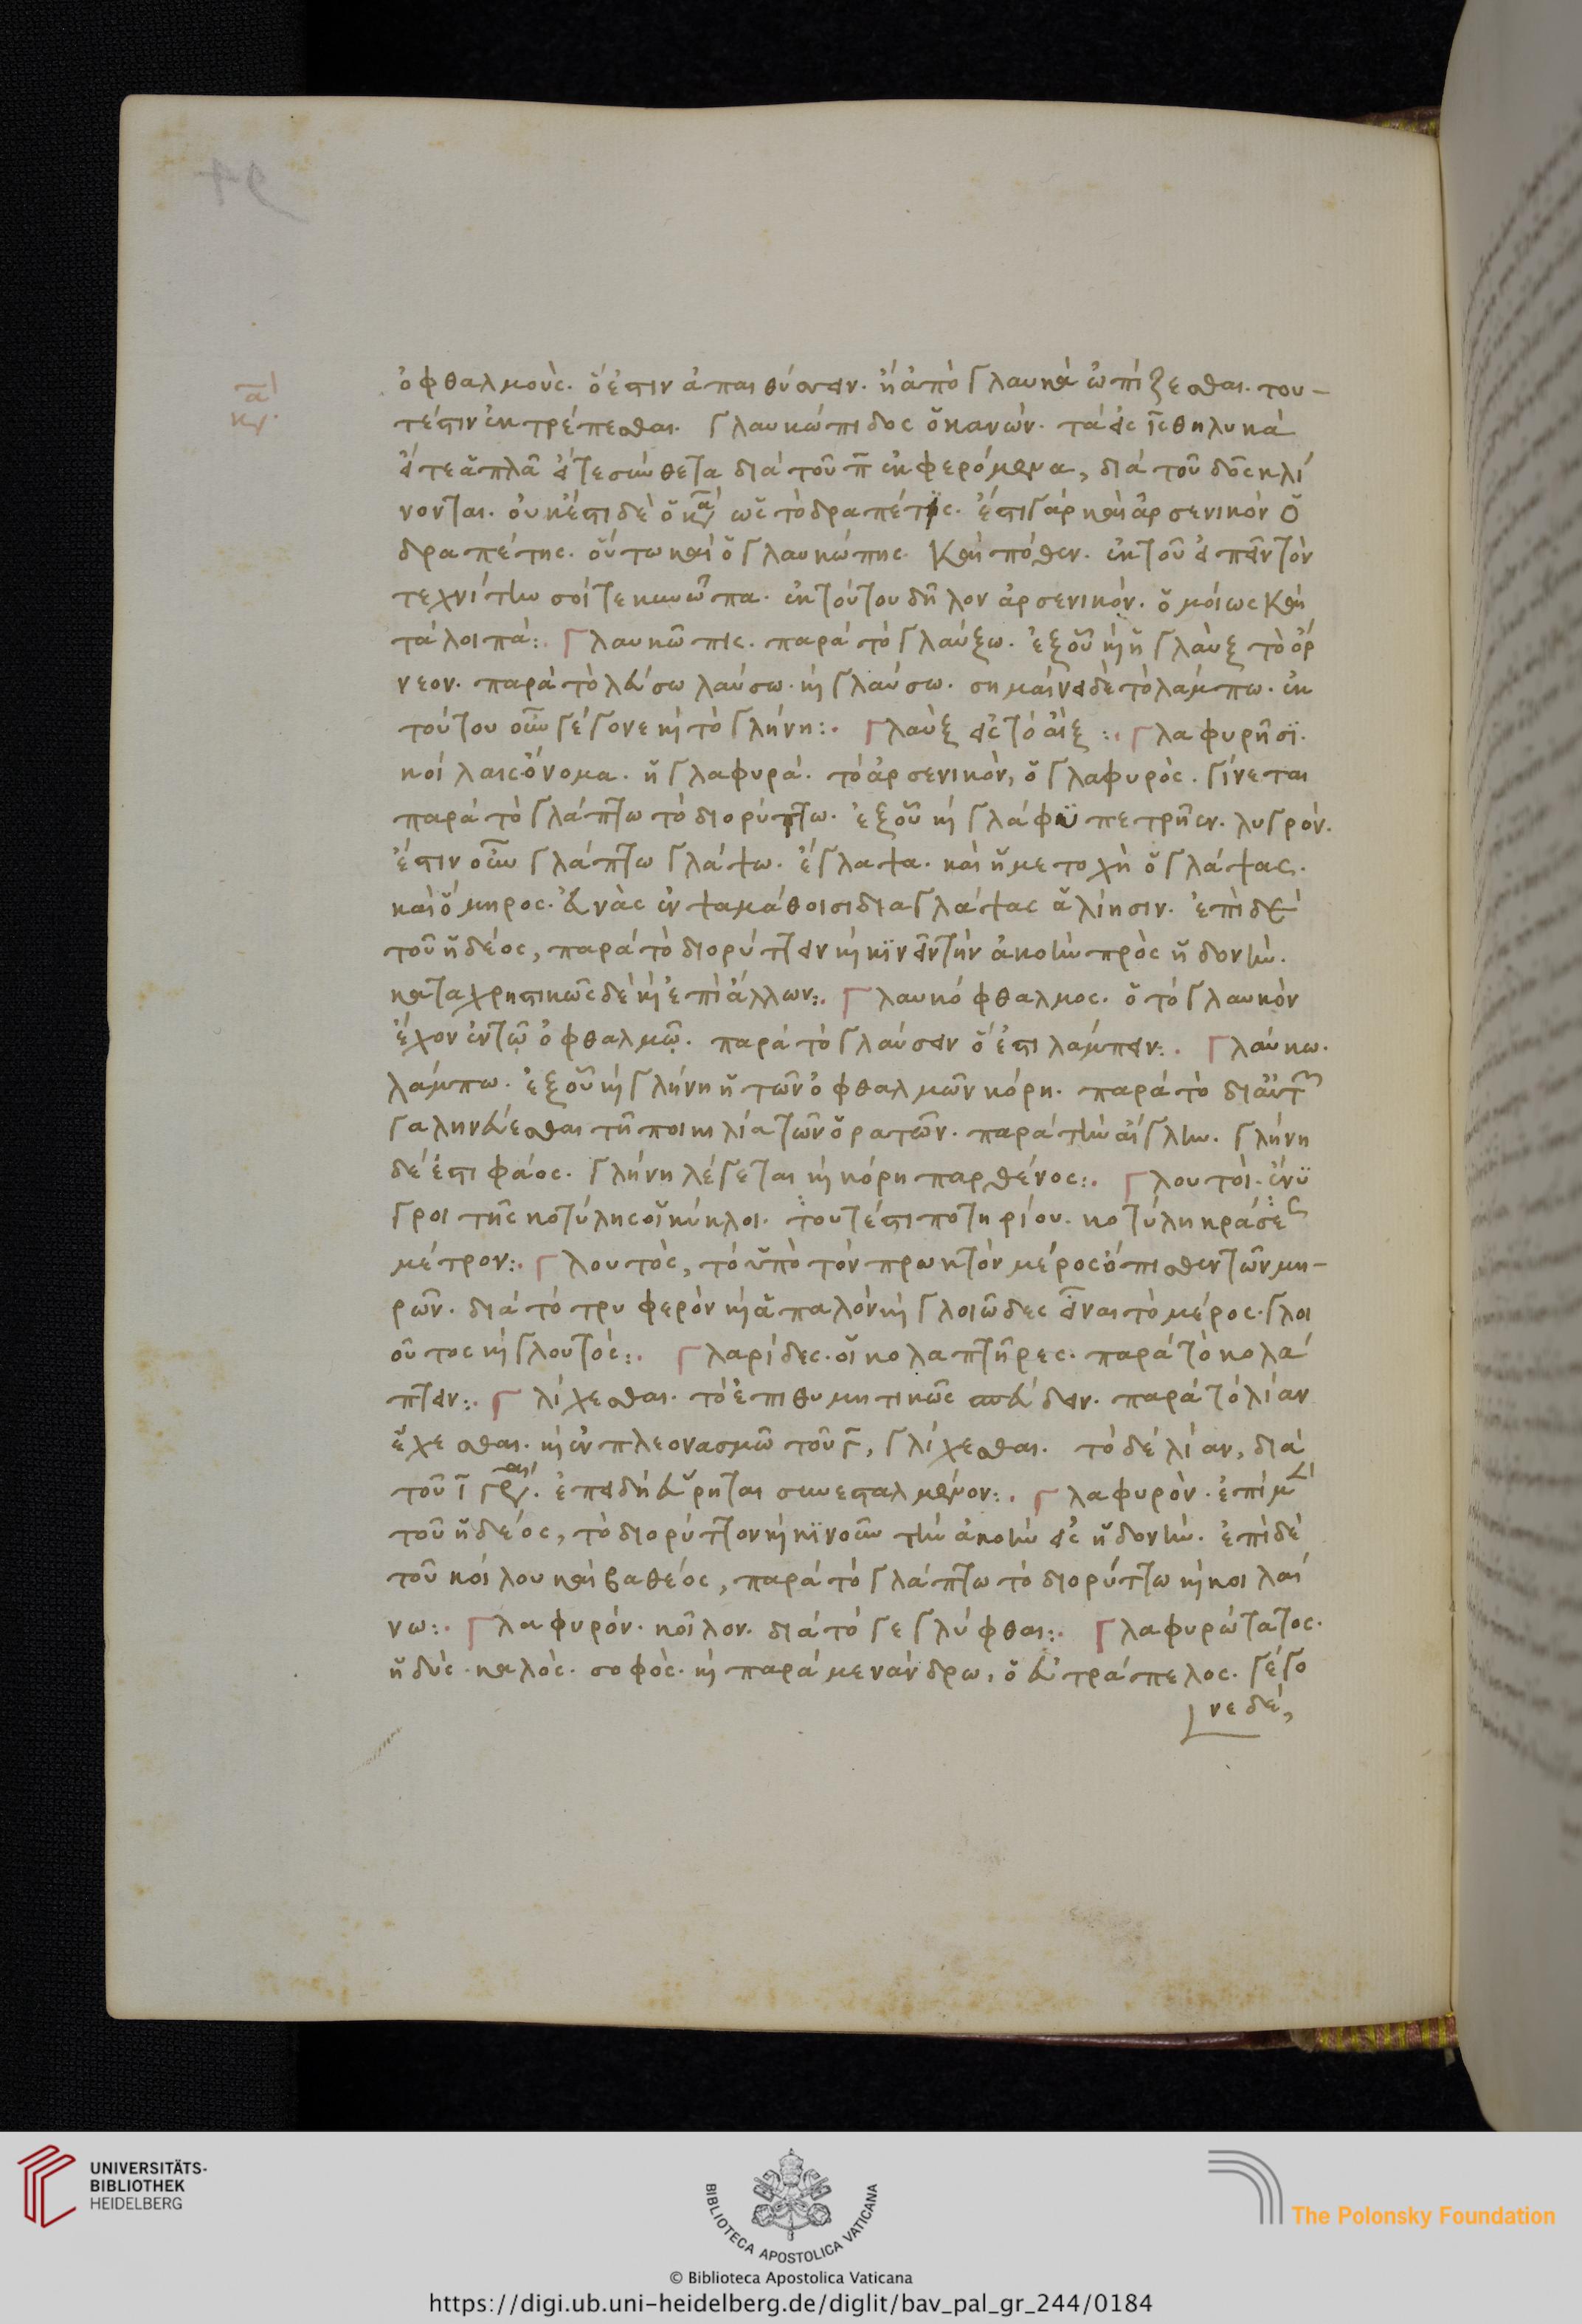 α κν
ὀφθαλμούς. ὅ ἐστιν ἀπαιθύσσειν. ἢ ἀπὸ γλαυκὰ ὠπίζεσθαι. του-
τέστιν ἐκτρέπεσθαι. γλαυκώπιδος ὁ κανών. τὰ εἰς ις θηλυκὰ
εἴτε ἁπλᾶ εἴτε σύνθετα διὰ τοῦ π ἐκφερόμενα, διὰ τοῦ δος κλί
νονται. οὐκ ἔστι δὲ ὁ κν ὡς τὸ δραπέτις. ἔστι γὰρ καὶ ἀρσενικὸν ὁ
δραπέτης. οὕτω καὶ ὁ γλαυκώπης. καὶ πόθεν. ἐκ τοῦ εἰπεῖν τὸν
τεχνίτην σοί τε κυνῶπα. ἐκ τούτου δῆλον ἀρσενικόν. ὁμοίως καὶ
τὰ λοιπά:. Γλαυκῶπις. παρὰ τὸ γλαύξω. ἐξ οὗ καὶ ἡ γλαὺξ τὸ ὄρ
νεον. παρὰ τὸ λεύσω λαύσω. καὶ γλαύσω. σημαίνει δὲ τὸ λάμπω. ἐκ
τούτου οὖν γέγονε καὶ τὸ γλήνη:. Γλαὺξ εἰς τὸ αἴξ:. Γλαφυρῆσϊ.
κοίλαις ὄνομα. ἡ γλαφυρά. τὸ ἀρσενικόν, ὁ γλαφυρός. γίνεται
παρὰ τὸ γλάπτω τὸ διορύττω. ἐξ οὗ καὶ γλάφυ πετρῆεν. λυγρόν.
ἔστιν οὖν γλάπτω γλάψω. ἔγλαψα. καὶ ἡ μετοχὴ ὁ γλάψας.
καὶ ὅμηρος. εὐνὰς ἐν ψαμάθοισι διαγλάψας ἁλίησιν. ἐπὶ δὲ
τοῦ ἡδέος, παρὰ τὸ διορύττειν καὶ κϊνεῖν τὴν ἀκοὴν πρὸς ἡδονήν.
καταχρηστικῶς δὲ καὶ ἐπὶ ἄλλων:. Γλαυκόφθαλμος. ὁ τὸ γλαυκὸν
ἔχον ἐν τῷ ὀφθαλμῷ. παρὰ τὸ γλαύσειν ὅ ἐστι λάμπειν:. Γλαύκω.
λάμπω. ἐξ οὗ καὶ γλήνη ἡ τῶν ὀφθαλμῶν κόρη. παρὰ τὸ δι αὐτῆς
γαληνεύεσθαι τῇ ποικιλία τῶν ὁρατῶν. παρὰ τὴν αἴγλην. γλήνη
δέ ἐστι φάος. γλήνη λέγεται καὶ κόρη παρθένος:. Γλουτοί. ἐνϋ
γροι τῆς κοτύλης οἱ κύκλοι. τουτέστι ποτηρίου. κοτύλη κράσεως
μέτρον:. Γλουτός, τὸ ὑπὸ τὸν πρωκτὸν μέρος ὄπισθεν τῶν μη-
ρῶν. διὰ τὸ τρυφερὸν καὶ ἁπαλὸν καὶ γλοιῶδες εἶναι τὸ μέρος. γλοι
οῦτος καὶ γλουτός:. Γλαρίδες. οἱ κολαπτῆρες. παρὰ τὸ κολά
πτειν:. Γλίχεσθαι. τὸ ἐπιθυμητικῶς σπεύδειν. παρὰ τὸ λίαν
ἔχεσθαι. καὶ ἐν πλεονασμῶ τοῦ γ, γλίχεσθαι. τὸ δὲ λίαν, διὰ
τοῦ ι γράφεται. ἐπειδὴ εὕρηται συνεσταλμένον:. Γλαφυρόν. ἐπὶ μὲν
τοῦ ἡδέος, τὸ διορύττον καὶ κϊνοῦν τὴν ἀκοὴν εἰς ἡδονήν. ἐπὶ δὲ
τοῦ κοίλου καὶ βαθέος, παρὰ τὸ γλάπτω τὸ διορύττω καὶ κοιλαί
νω:. Γλαφυρόν. κοῖλον. διὰ τὸ γεγλύφθαι:. Γλαφυρώτατος.
ἡδύς. καλός. σοφός. καὶ παρὰ μενάνδρω, ὁ εὐτράπελος. γέγο
νε δέ,
UNIVERSITÄTS-
BIBLIOTHEK
HEIDELBERG
BIBLIOTECA APOSTOLICA VATICANA
The Polonsky Foundation
© Biblioteca Apostolica Vaticana
https://digi.ub.uni-heidelberg.de/diglit/bav_pal_gr_244/0184